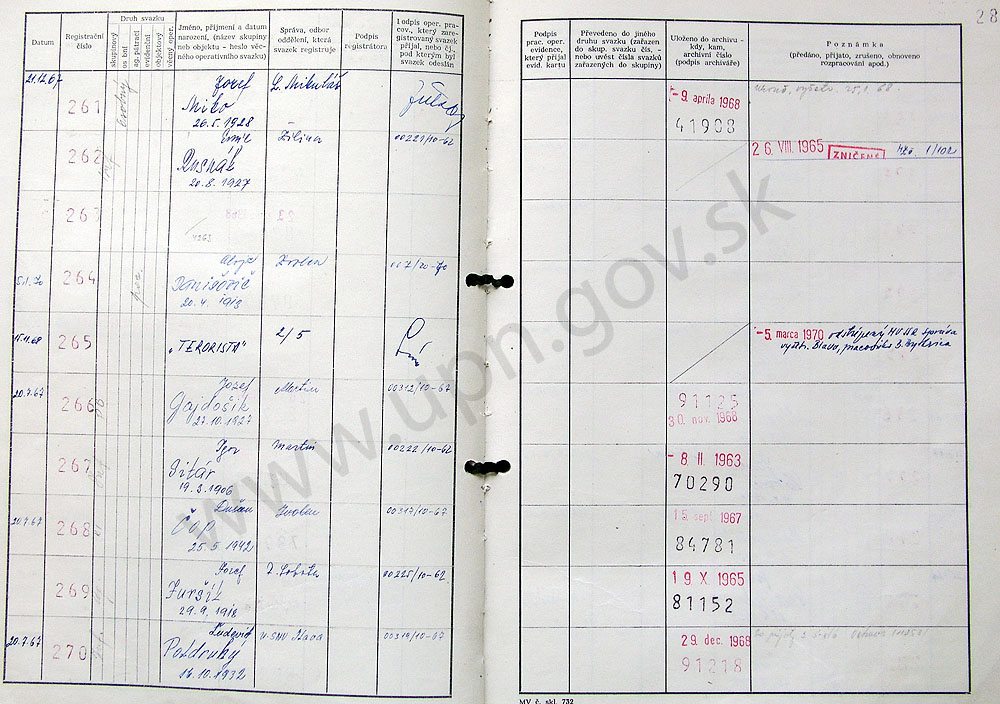 28
Datum
Registrační číslo
Druh svazku
skupinový
os bní
ag. pátrací
evidenční
objektový
věcný oper.
Jméno, příjmení a datum
narození, (název skupiny
neb objektu - heslo věc-
ného operativního svazku)
Správa, odbor
oddělení, která
svazek registruje
Podpis
registrátora
Podpis oper. pra-
cov., který zare-
gistrovaný svazek
přijal, nebo čj.,
pod kterým byl
svazek odeslán
Podpis
prac. oper.
evidence,
který přijal
evid. kartu
Převedeno do jiného
druhu svazku (zařazen
do skup. svazku čís. -
nebo uvést čísla svazků
zařazených do skupiny)
Uloženo do archivu -
kdy, kam,
archivní číslo
(podpis archiváře)
Poznámka
(předáno, přijato, zrušeno, obnoveno
rozpracování apod.)
21.12.67
261
Jozef
Miko
26.5.1928
L. Mikuláš
- 9. apríla 1968
41908
25.1.68.
262
Emil
Rusnák
20.8.1927
Žilina
00221/10-62
26. VIII. 1965
ZNIČENÉ
263
264
Zvolen
007/20-70
20.4.1913
15.11.68
265
"TERORISTA"
2/5
- 5. marca 1970
odstúpený HV ŠtB Správa
vyšetr. B. Bystrica
20.7.67
266
Jozef
Gajdošík
27.10.1927
Martin
00312/10-67
91125
30. nov. 1968
267
Igor
Sitár
19.3.1906
Martin
00222/10-62
- 8. II. 1963
70290
20.7.67
268
Dušan
Čop
25.5.1942
Zvolen
00317/10-67
15. sept. 1967
84781
269
Jozef
Furšík
29.9.1918
R. Sobota
00225/10-62
19 X 1965
81152
20.7.67
270
Ľudevít
Pozdruhý
16.10.1932
00319/10-67
29. dec. 1968
91218
MV č. skl. 732
www.upn.gov.sk